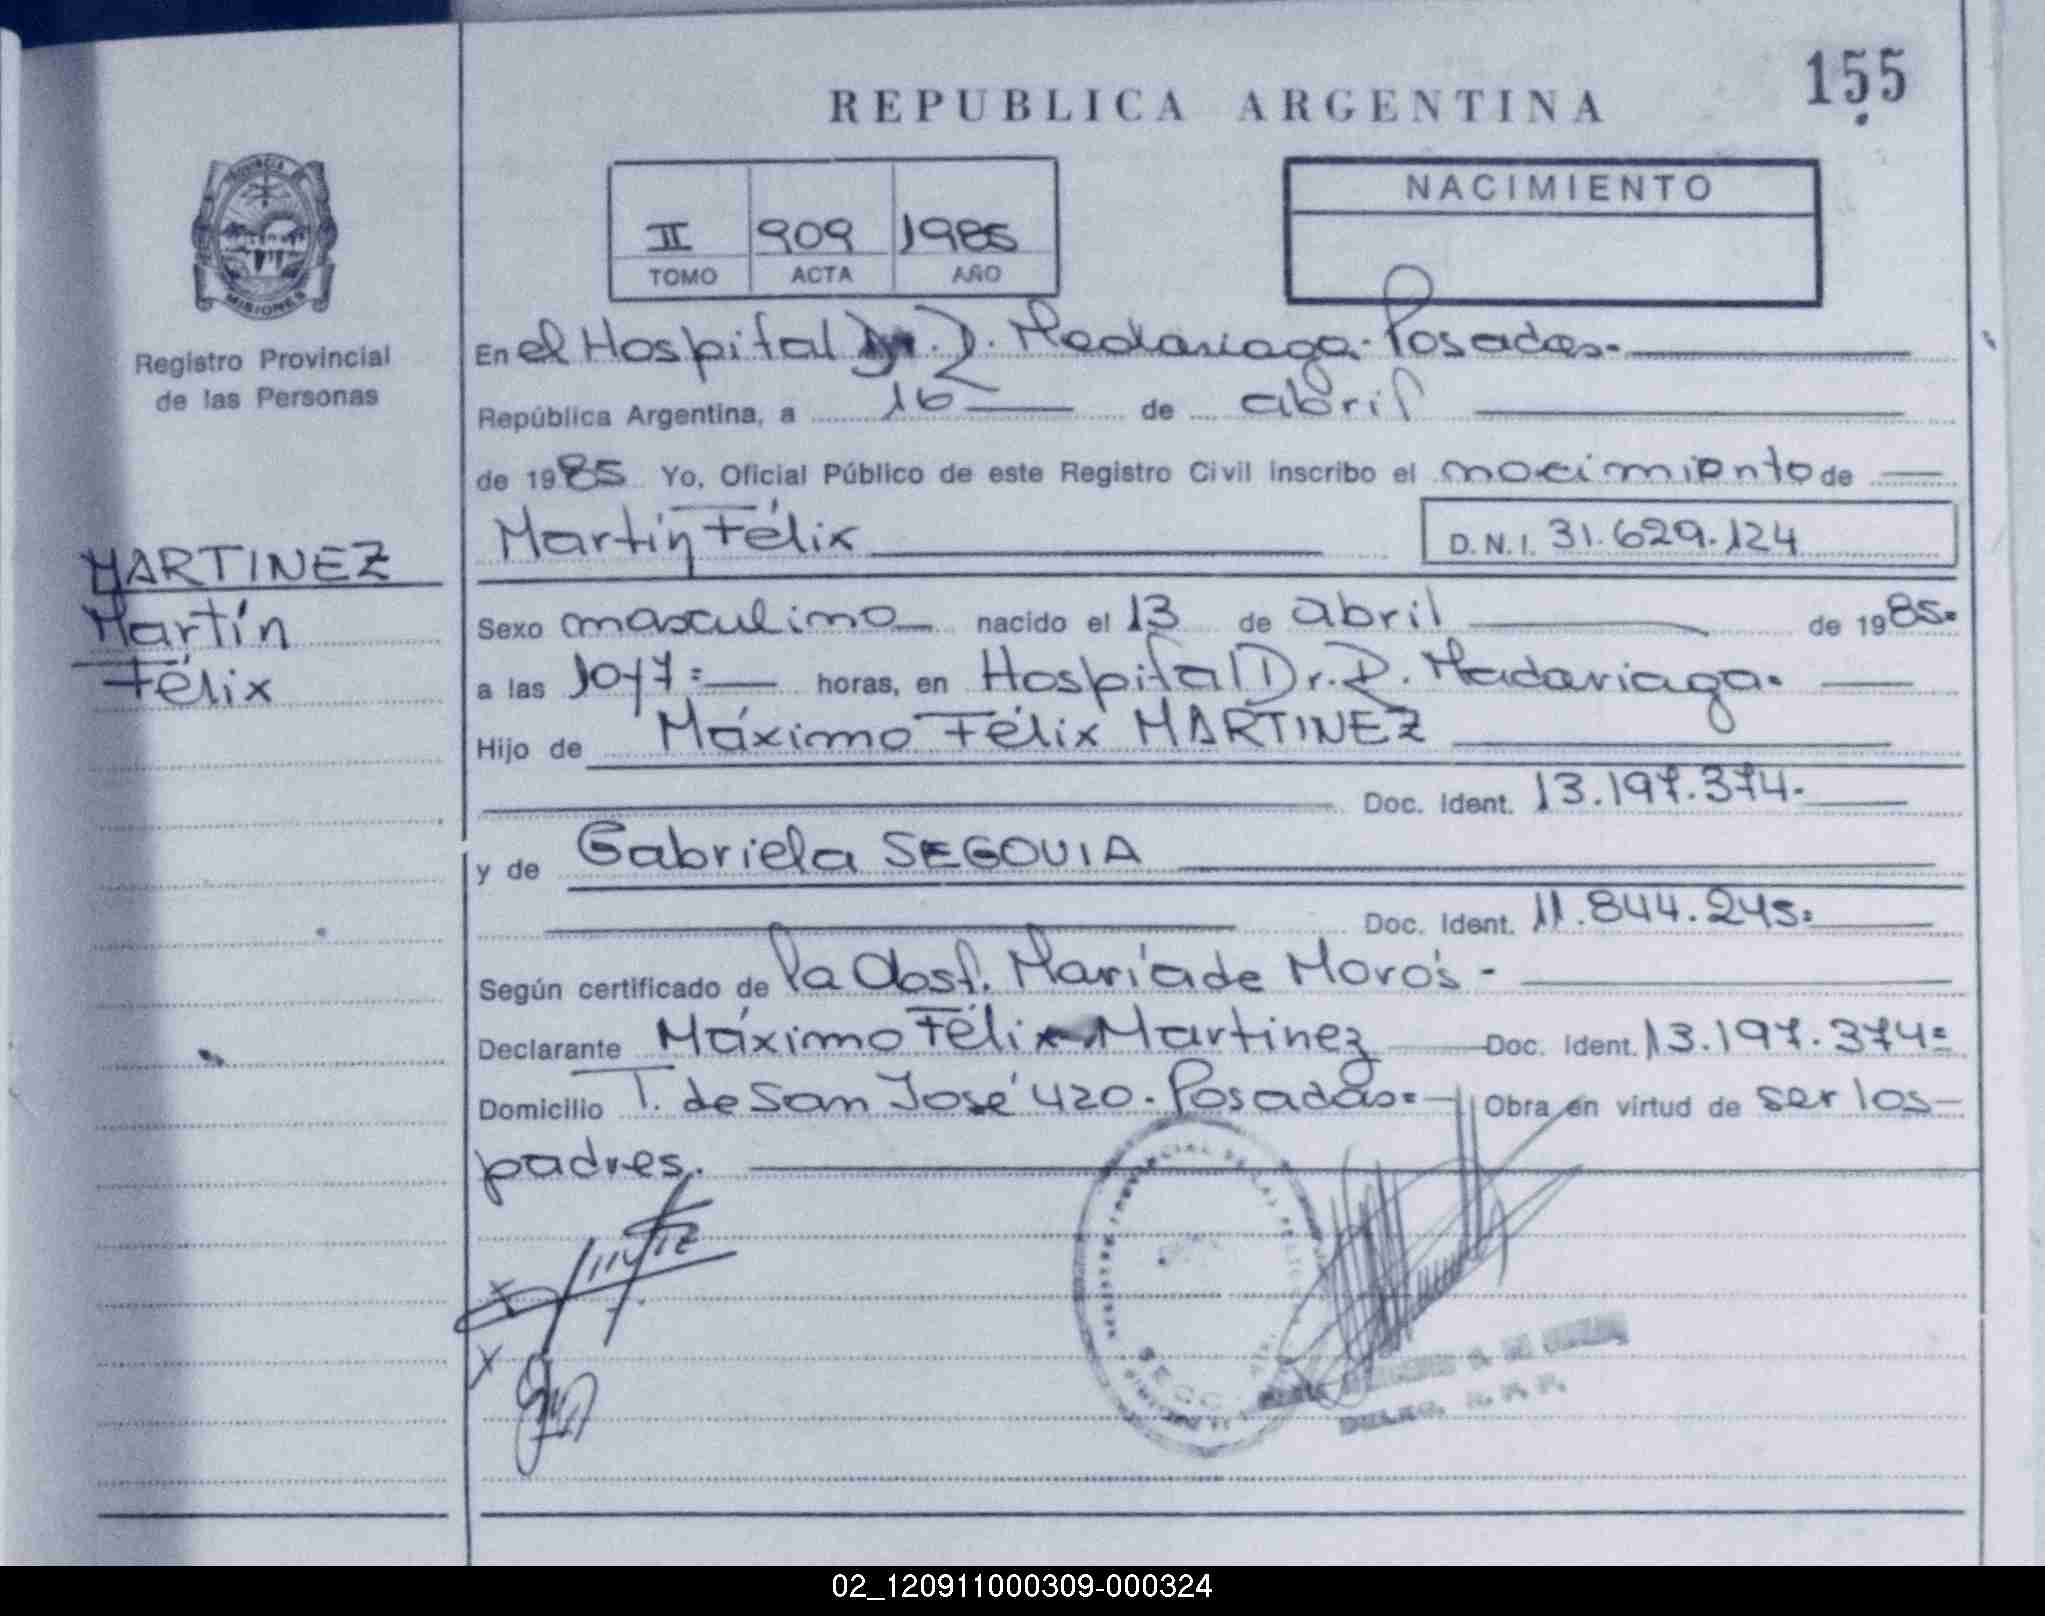 155
REPUBLICA ARGENTINA
PROVINCIA
MISIONES
Registro Provincial
de las Personas
II 909 1985
TOMO ACTA AÑO
NACIMIENTO
En el Hospital Dr. R. Madariaga. Posadas.
República Argentina, a 16 de abril
de 1985 Yo, Oficial Público de este Registro Civil inscribo el nacimiento de
MARTINEZ
Martín
Félix
Martín Félix D.N.I. 31.629.124
Sexo masculino nacido el 13 de abril de 1985=
a las 10 y 7= horas, en Hospital Dr. R. Madariaga.
Hijo de Máximo Félix MARTINEZ
Doc. Ident. 13.197.374.
y de Gabriela SEGOVIA
Doc. Ident. 11.844.245=
Según certificado de la Obst. María de Morós -
Declarante Máximo Félix Martinez Doc. Ident. 13.197.374=
Domicilio T. de San José 420. Posadas= Obra en virtud de ser los
padres.
SECC
02_120911000309-000324